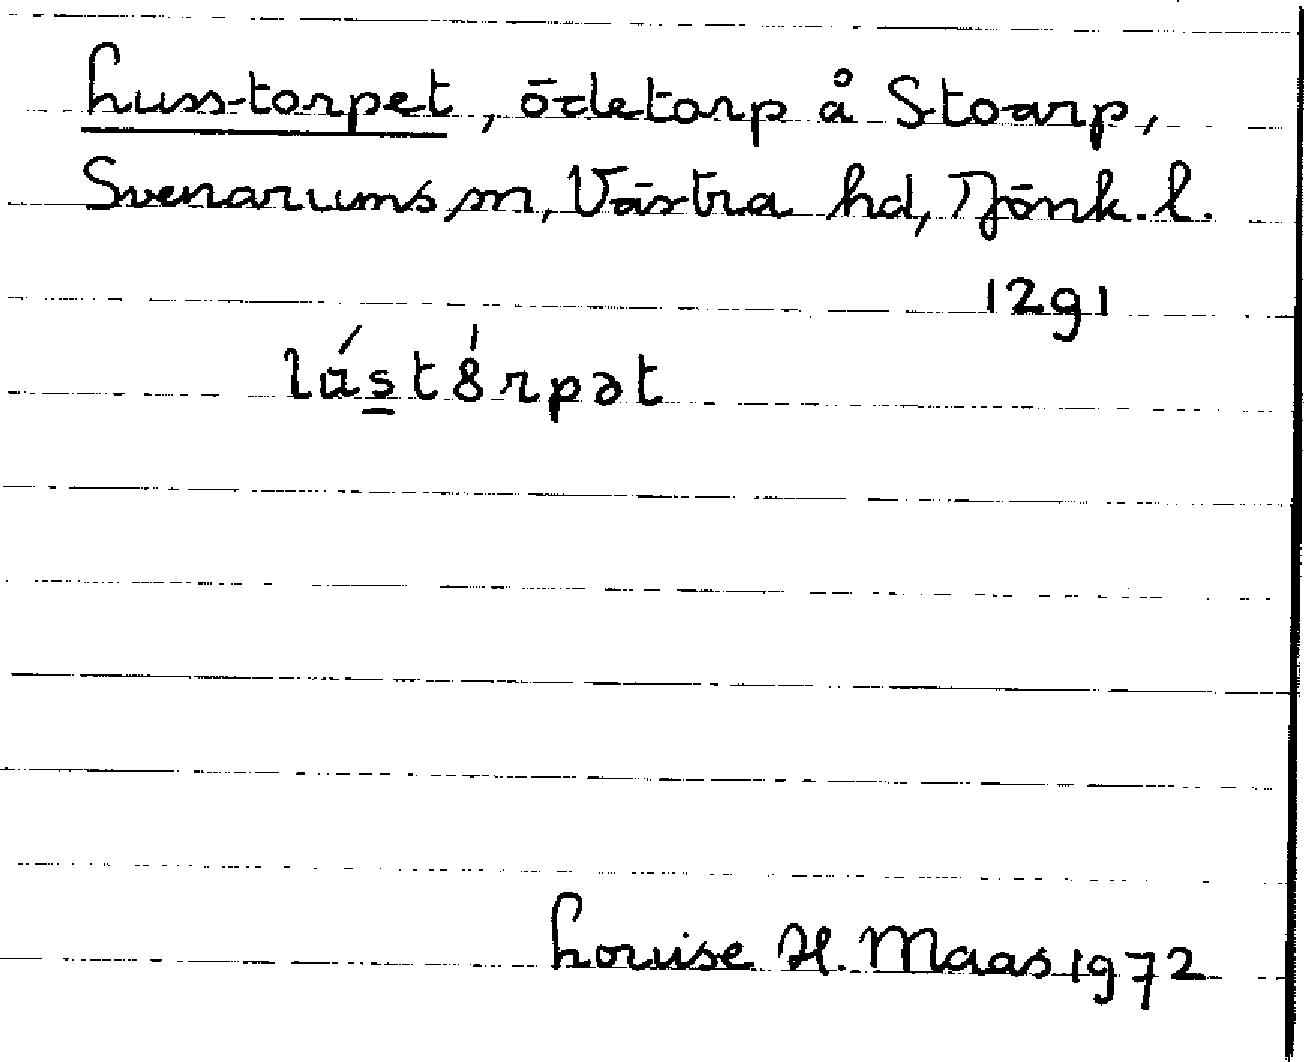 Luss-torpet, ödetorp å Stoarp,
Svenarums sn, Västra hd, Jönk. l.
1291
lústȣ́rpət
Louise H. Maas 1972